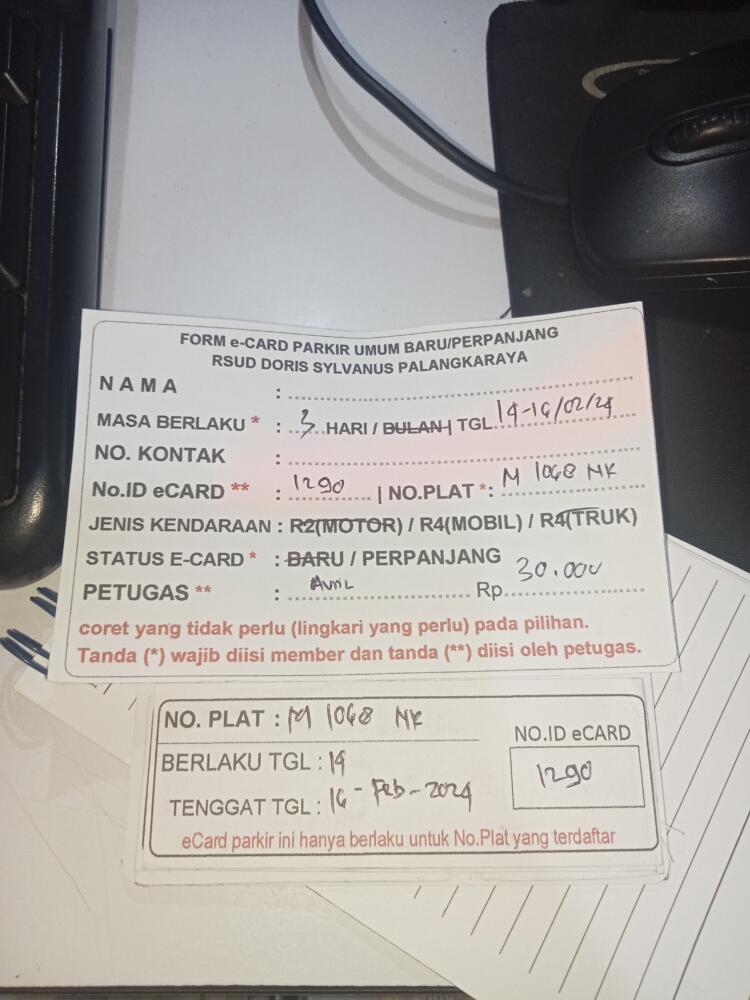 FORM e-CARD PARKIR UMUM BARU/PERPANJANG
RSUD DORIS SYLVANUS PALANGKARAYA
NAMA :
MASA BERLAKU * : 3 HARI / BULAN | TGL 14-16/02/24
NO. KONTAK :
No.ID eCARD ** : 1290 | NO.PLAT *: M 1068 NK
JENIS KENDARAAN : R2(MOTOR) / R4(MOBIL) / R4(TRUK)
STATUS E-CARD * : BARU / PERPANJANG
PETUGAS ** : Avril Rp. 30.000
coret yang tidak perlu (lingkari yang perlu) pada pilihan.
Tanda (*) wajib diisi member dan tanda (**) diisi oleh petugas.
NO. PLAT : M 1068 NK
NO.ID eCARD
1290
BERLAKU TGL : 14
TENGGAT TGL : 16 - Feb - 2024
eCard parkir ini hanya berlaku untuk No.Plat yang terdaftar